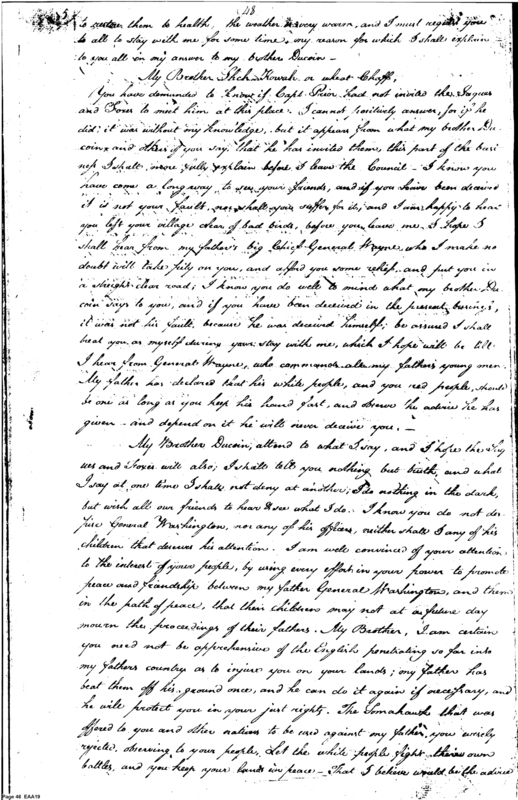 48
to restore them to health, the weather is very warm, and I must request you
to all to stay with me for some time, my reason for which I shall explain
to you all in my answer to my brother Ducoin –
My Brother Shek-Kowah or wheat Chaff,
You have demanded to know if Capt. Prior had not invited the Saques
and Foxes to meet him at this place. I cannot positively answer, for if he
did; it was without my knowledge, but it appears from what my brother Du
coin, and others of you say, that he has invited them, this part of the busi
ness I shall more fully explain before I leave the Council – I know you
have come a long way to see your friends, and if you have been deceived
it is not your fault, nor shall you suffer for it; and I am happy to hear
you left your village clear of bad birds, before you leave me, I hope I
shall hear from my father's big Chief General Wayne, who I make no
doubt will take pity on you, and afford you some relief, and put you in
a streight clear road; I know you do well to mind what my brother Du
coin says to you, and if you have been deceived in the present business,
it was not his fault, because he was deceived himself; be assured I shall
treat you as myself during your stay with me, which I hope will be till
I hear from General Wayne, who commands all my father's young men.
My father has declared that his white people, and you red people, should
be one as long as you keep his hand fast, and observe the advice he has
given – and depend on it he will never deceive you. –
My Brother Ducoin, attend to what I say, and I hope the Saq
ues and Foxes will also; I shall tell you nothing but truth, and what
I say at one time I shall not deny at another; I do nothing in the dark,
but wish all our friends to hear & see what I do. I know you do not des
pise General Washington, nor any of his officers, neither shall I any of his
children that deserves his attention. I am well convinced of your attention
to the interest of your people, by using every effort in your power to promote
peace and friendship between my father General Washington, and them
in the path of peace, that their children may not at a future day
mourn the proceedings of their fathers. My Brother, I am certain
you need not be apprehensive of the English penetrating so far into
my fathers country as to injure you on your lands; my father has
beat them off his ground once, and he can do it again if necessary, and
he will protect you in your just rights. The Tomahawk that was
offered to you and other nations to be used against my father, you wisely
rejected, observing to your people, Let the white people fight their own
battles, and you keep your lands in peace – That I believe would be the advice
Page 46 EAA19